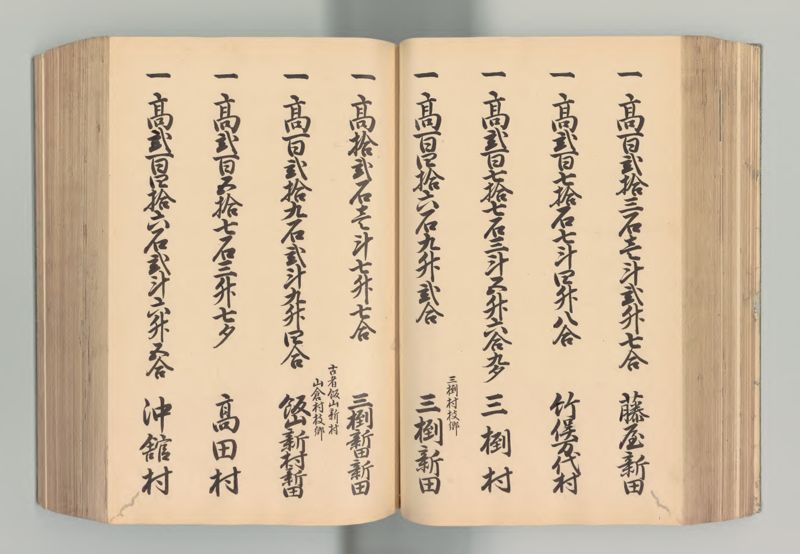 一 高百弐拾三石壱斗弐升七合 藤屋新田
一 高弐百七拾石七斗四升八合 竹俣万代村
一 高弐百七拾七石三斗五升六合九夕 三椡村
三椡村枝郷
一 高百四拾六石九升弐合 三椡新田
一 高拾弐石壱斗七升七合 三椡新田新田
古者飯山新村
山倉村枝郷
一 高百弐拾九石弐斗九升四合 飯山新村新田
一 高弐百五拾七石三升七夕 高田村
一 高弐百四拾六石弐斗六升五合 沖舘村